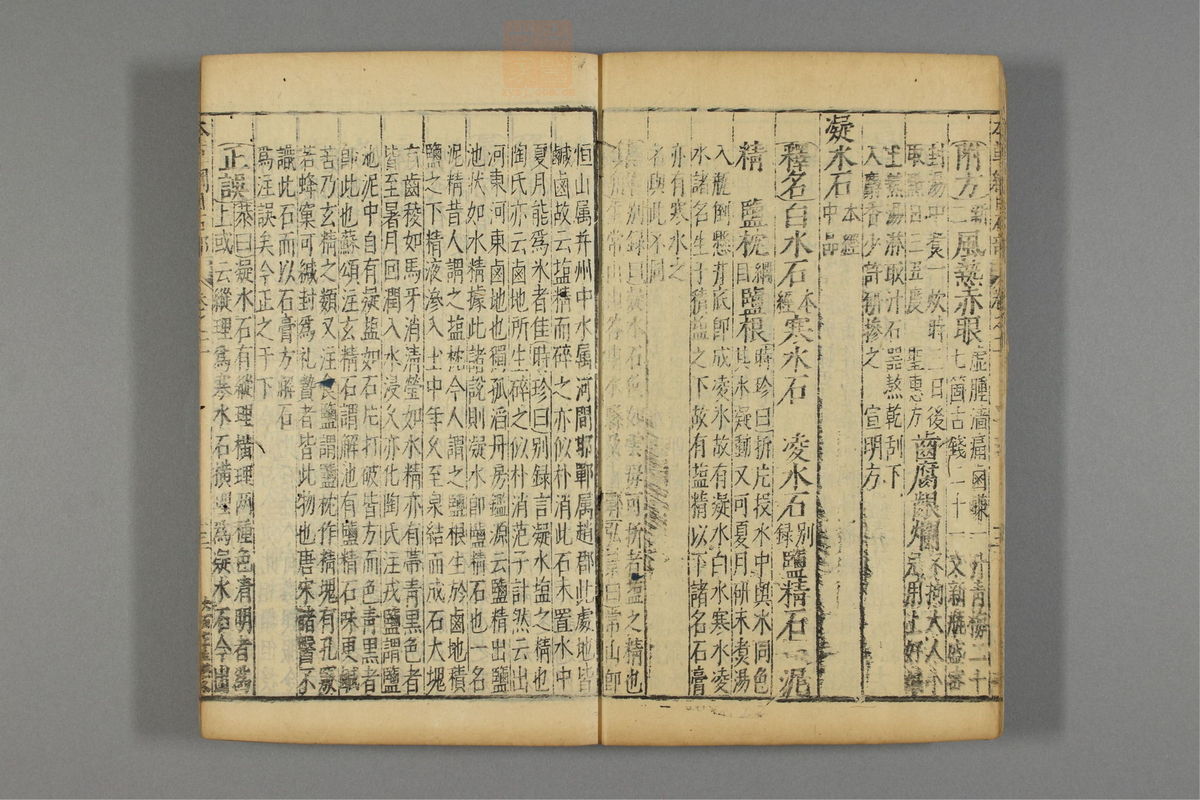 附方新二風葢赤眼虛腫澀痛鹵鹻一
封湯中煮一炊時一日後
取點日三五度 聖惠方 齒腐齦爛不拘大人小
土熬湯蒸取汁石器熬乾刮下
入麝香少許研摻之 宣明方
凝水石本經中品
釋名白水石本經寒水石 凌水石別錄鹽精石 泥
精 鹽枕綱目鹽根時珍曰拆片投水中與水同色
其水凝動又可夏月研末煮湯
入瓶倒懸井底即成凌冰故有凝水白水寒水凌
水諸名生于積鹽之下故有塩精以下諸名石膏
亦有寒水之
名與此不同
別錄曰 水石 如雲母可拆者塩之精也
常山 水 弘景曰常山即
恒山属并州中水属河間邯鄲属趙郡此處地皆
鹹鹵故云塩精而碎之亦似朴消此石末置水中
夏月能爲氷者佳時珍曰別録言凝水塩之精也
陶氏亦云鹵地所生碎之似朴消范子計然云出
河東河東鹵地也獨孤滔丹房鑑源云鹽精出鹽
池状如水精據此諸說則凝水即鹽精石也一名
泥精昔人謂之塩枕今人謂之鹽根生於鹵地積
鹽之下精液滲入土中年久至泉結而成石大塊
有齒稜如馬牙消清瑩如水精亦有帯青黑色者
皆至暑月回潤入水浸久亦化陶氏注戎鹽謂鹽
池泥中自有凝塩如石片打破皆方而色青黑者
即此也蘇頌注玄精石謂解池有鹽精石味更鹹
苦乃玄精之類又注食鹽謂鹽枕作精塊有孔竅
若蜂窠可緘封爲礼贄者皆此物也唐宋諸醫不
識此石而以石膏方解石
爲注誤矣今正之于下
正誤恭曰凝水石有縱理橫理兩種色清明者爲
上或云縱理爲寒水石橫理爲凝水石今出